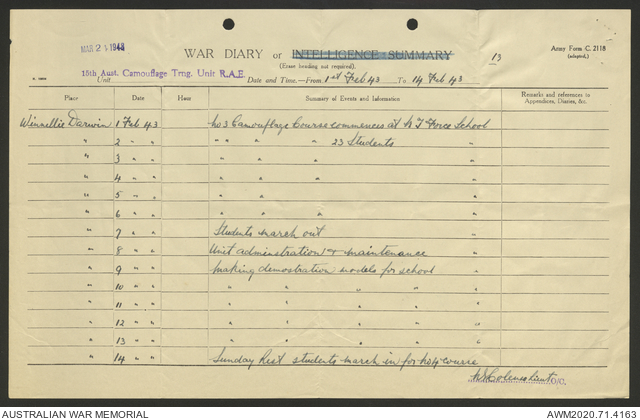 MAR 21 1943
WAR DIARY or INTELLIGENCE SUMMARY
13
Army Form C. 2118
(adapted.)
(Erase heading not required).
15th Aust. Camouflage Trng. Unit R.A.E.
Unit
Date and Time.—From 1st Feb 43 To 14 Feb 43
Place Date Hour Summary of Events and Information Remarks and references to Appendices, Diaries, &c.
Winnellie Darwin 1 Feb 43 No 3 Camouflage Course commences at N T Force School
" 2 " " " " " " 23 Students "
" 3 " " " " " "
" 4 " " " " " "
" 5 " " " " " "
" 6 " " " " " "
" 7 " " Students march out "
" 8 " " Unit adminstration & maintenance "
" 9 " " Making demostration models for school "
" 10 " " " " " " "
" 11 " " " " " " "
" 12 " " " " " " "
" 13 " " " " " " "
" 14 " " Sunday Rest students march in for No 4 course
O/C.
AUSTRALIAN WAR MEMORIAL
AWM2020.71.4163